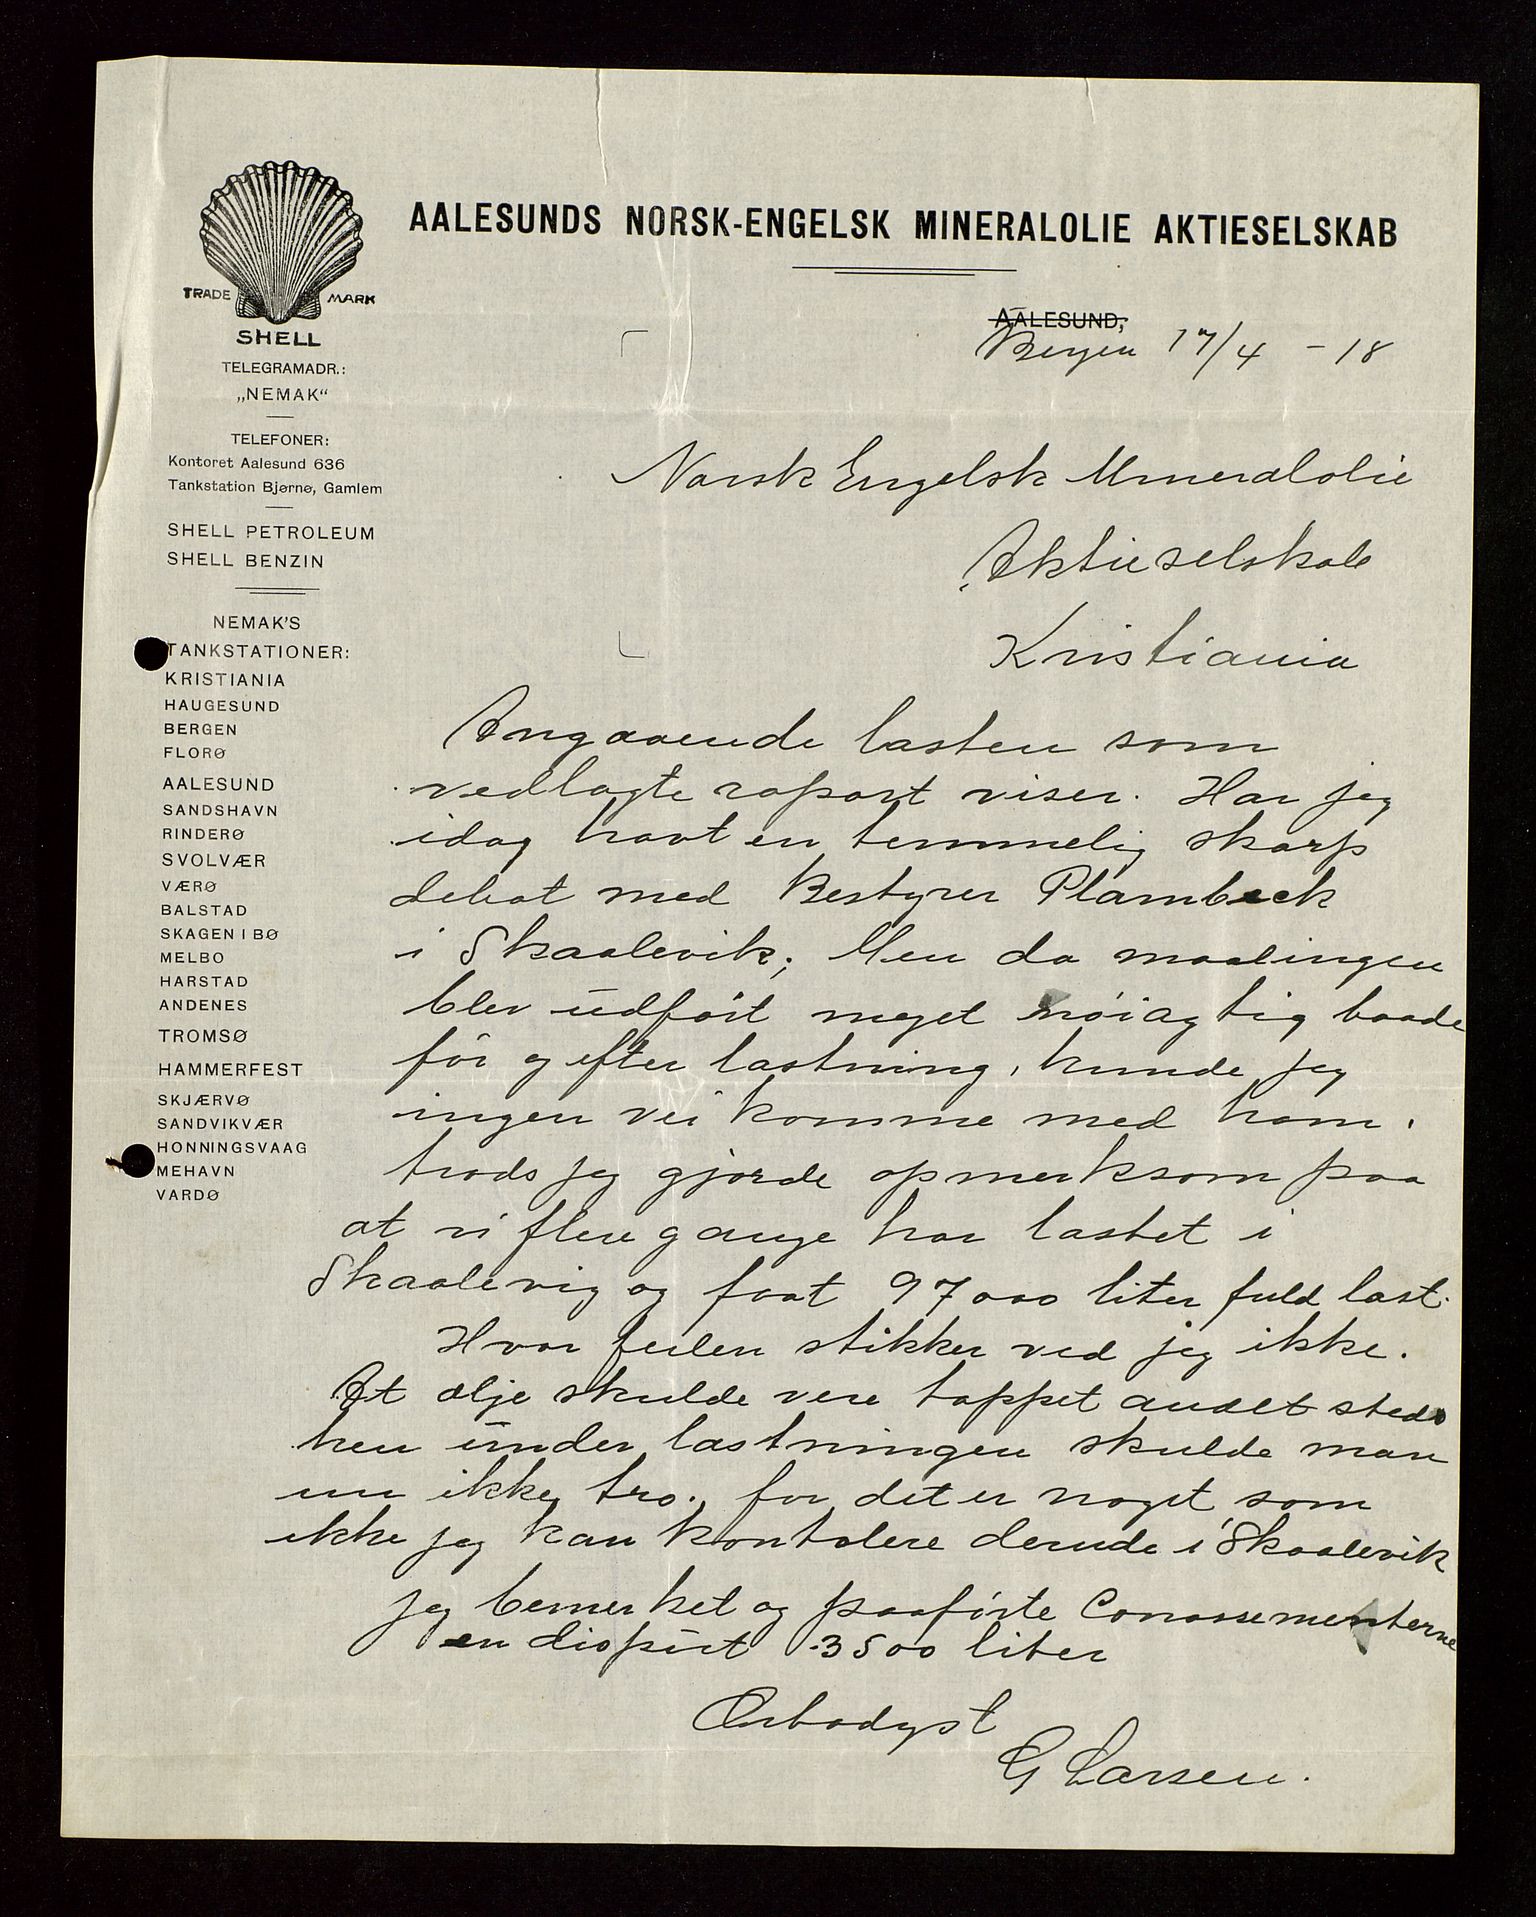 AALESUNDS NORSK-ENGELSK MINERALOLIE AKTIESELSKAB
TRADE MARK
SHELL
TELEGRAMADR.:
„NEMAK“
TELEFONER:
Kontoret Aalesund 636
Tankstation Bjørnø, Gamlem
SHELL PETROLEUM
SHELL BENZIN
NEMAK'S
TANKSTATIONER:
KRISTIANIA
HAUGESUND
BERGEN
FLORØ
AALESUND
SANDSHAVN
RINDERØ
SVOLVÆR
VÆRØ
BALSTAD
SKAGEN I BØ
MELBO
HARSTAD
ANDENES
TROMSØ
HAMMERFEST
SKJÆRVØ
SANDVIKVÆR
HONNINGSVAAG
MEHAVN
VARDØ
AALESUND,
Bergen 17/4 - 18
Norsk Engelsk Mineralolie
Aktieselskab
Kristiania
Angaaende lasten som
vedlagte raport viser. Har jeg
idag havt en temmelig skarp
debat med Bestyrer Plambeck
i Skaalevik; Men da maalingen
blev udført meget nøiagtig baade
før og efter lastning, kunde jeg
ingen vei komme med ham.
trods jeg gjorde opmerksom paa
at vi flere gange har lastet i
Skaalevig og faat 97000 liter fuld last.
Hvor feilen stikker ved jeg ikke.
At olje skulde vere tappet andet steds
hen under lastningen skulde man
nu ikke tro, for det er noget som
ikke jeg kan kontolere derude i Skaalevik
jeg bemerket og paaførte Conossementerne
en dispüt 3500 liter
Ærbødigst
G Larsen.